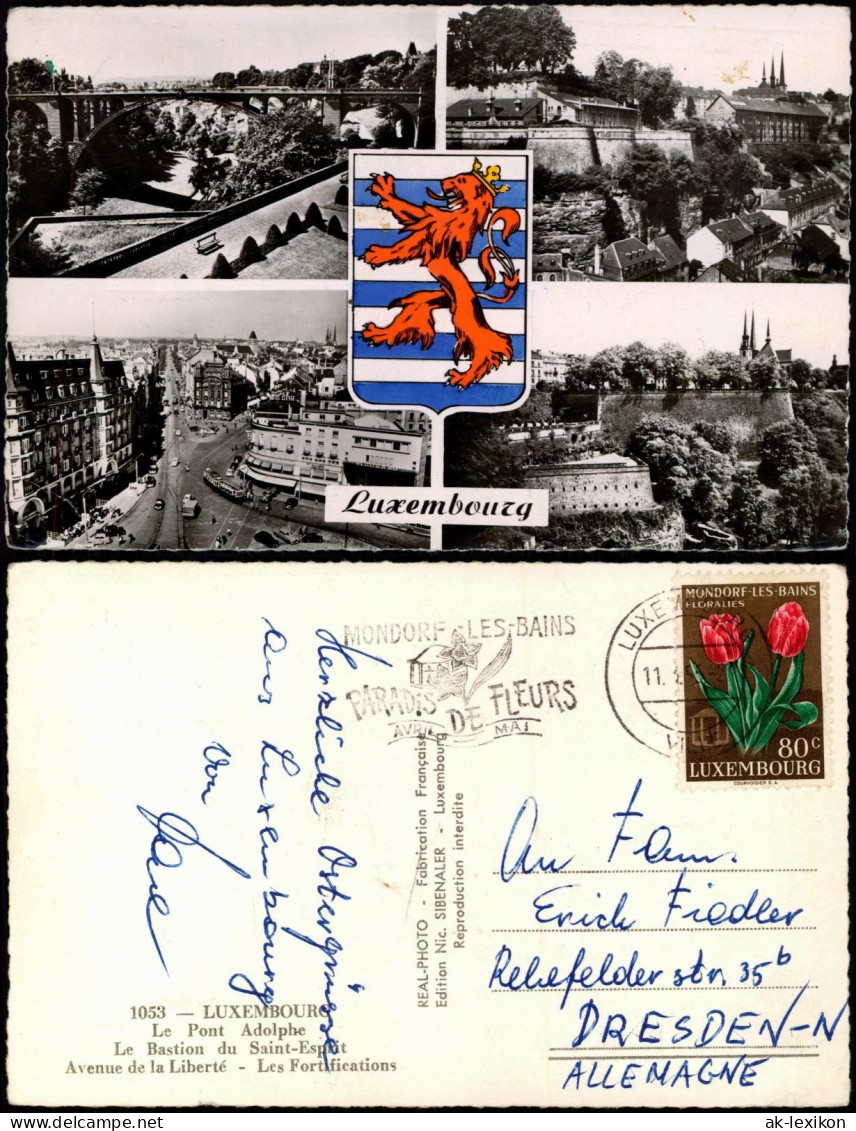 Luxembourg
MONDORF-LES-BAINS
PARADIS
DE FLEURS
AVRIL
MAI
MONDORF-LES-BAINS
FLORALIES
80c
LUXEMBOURG
COURVOISIER S.A.
Herzliche Ostergrüsse
aus Luxembourg
von
REAL-PHOTO - Fabrication Française
Edition Nic. SIBENALER - Luxembourg
Reproduction interdite
An Fam.
Erich Fiedler
Rehefelder str. 35b
DRESDEN-N
ALLEMAGNE
1053 — LUXEMBOURG
Le Pont Adolphe
Le Bastion du Saint-Esprit
Avenue de la Liberté - Les Fortifications
ak-lexikon
ak-lexikon.com